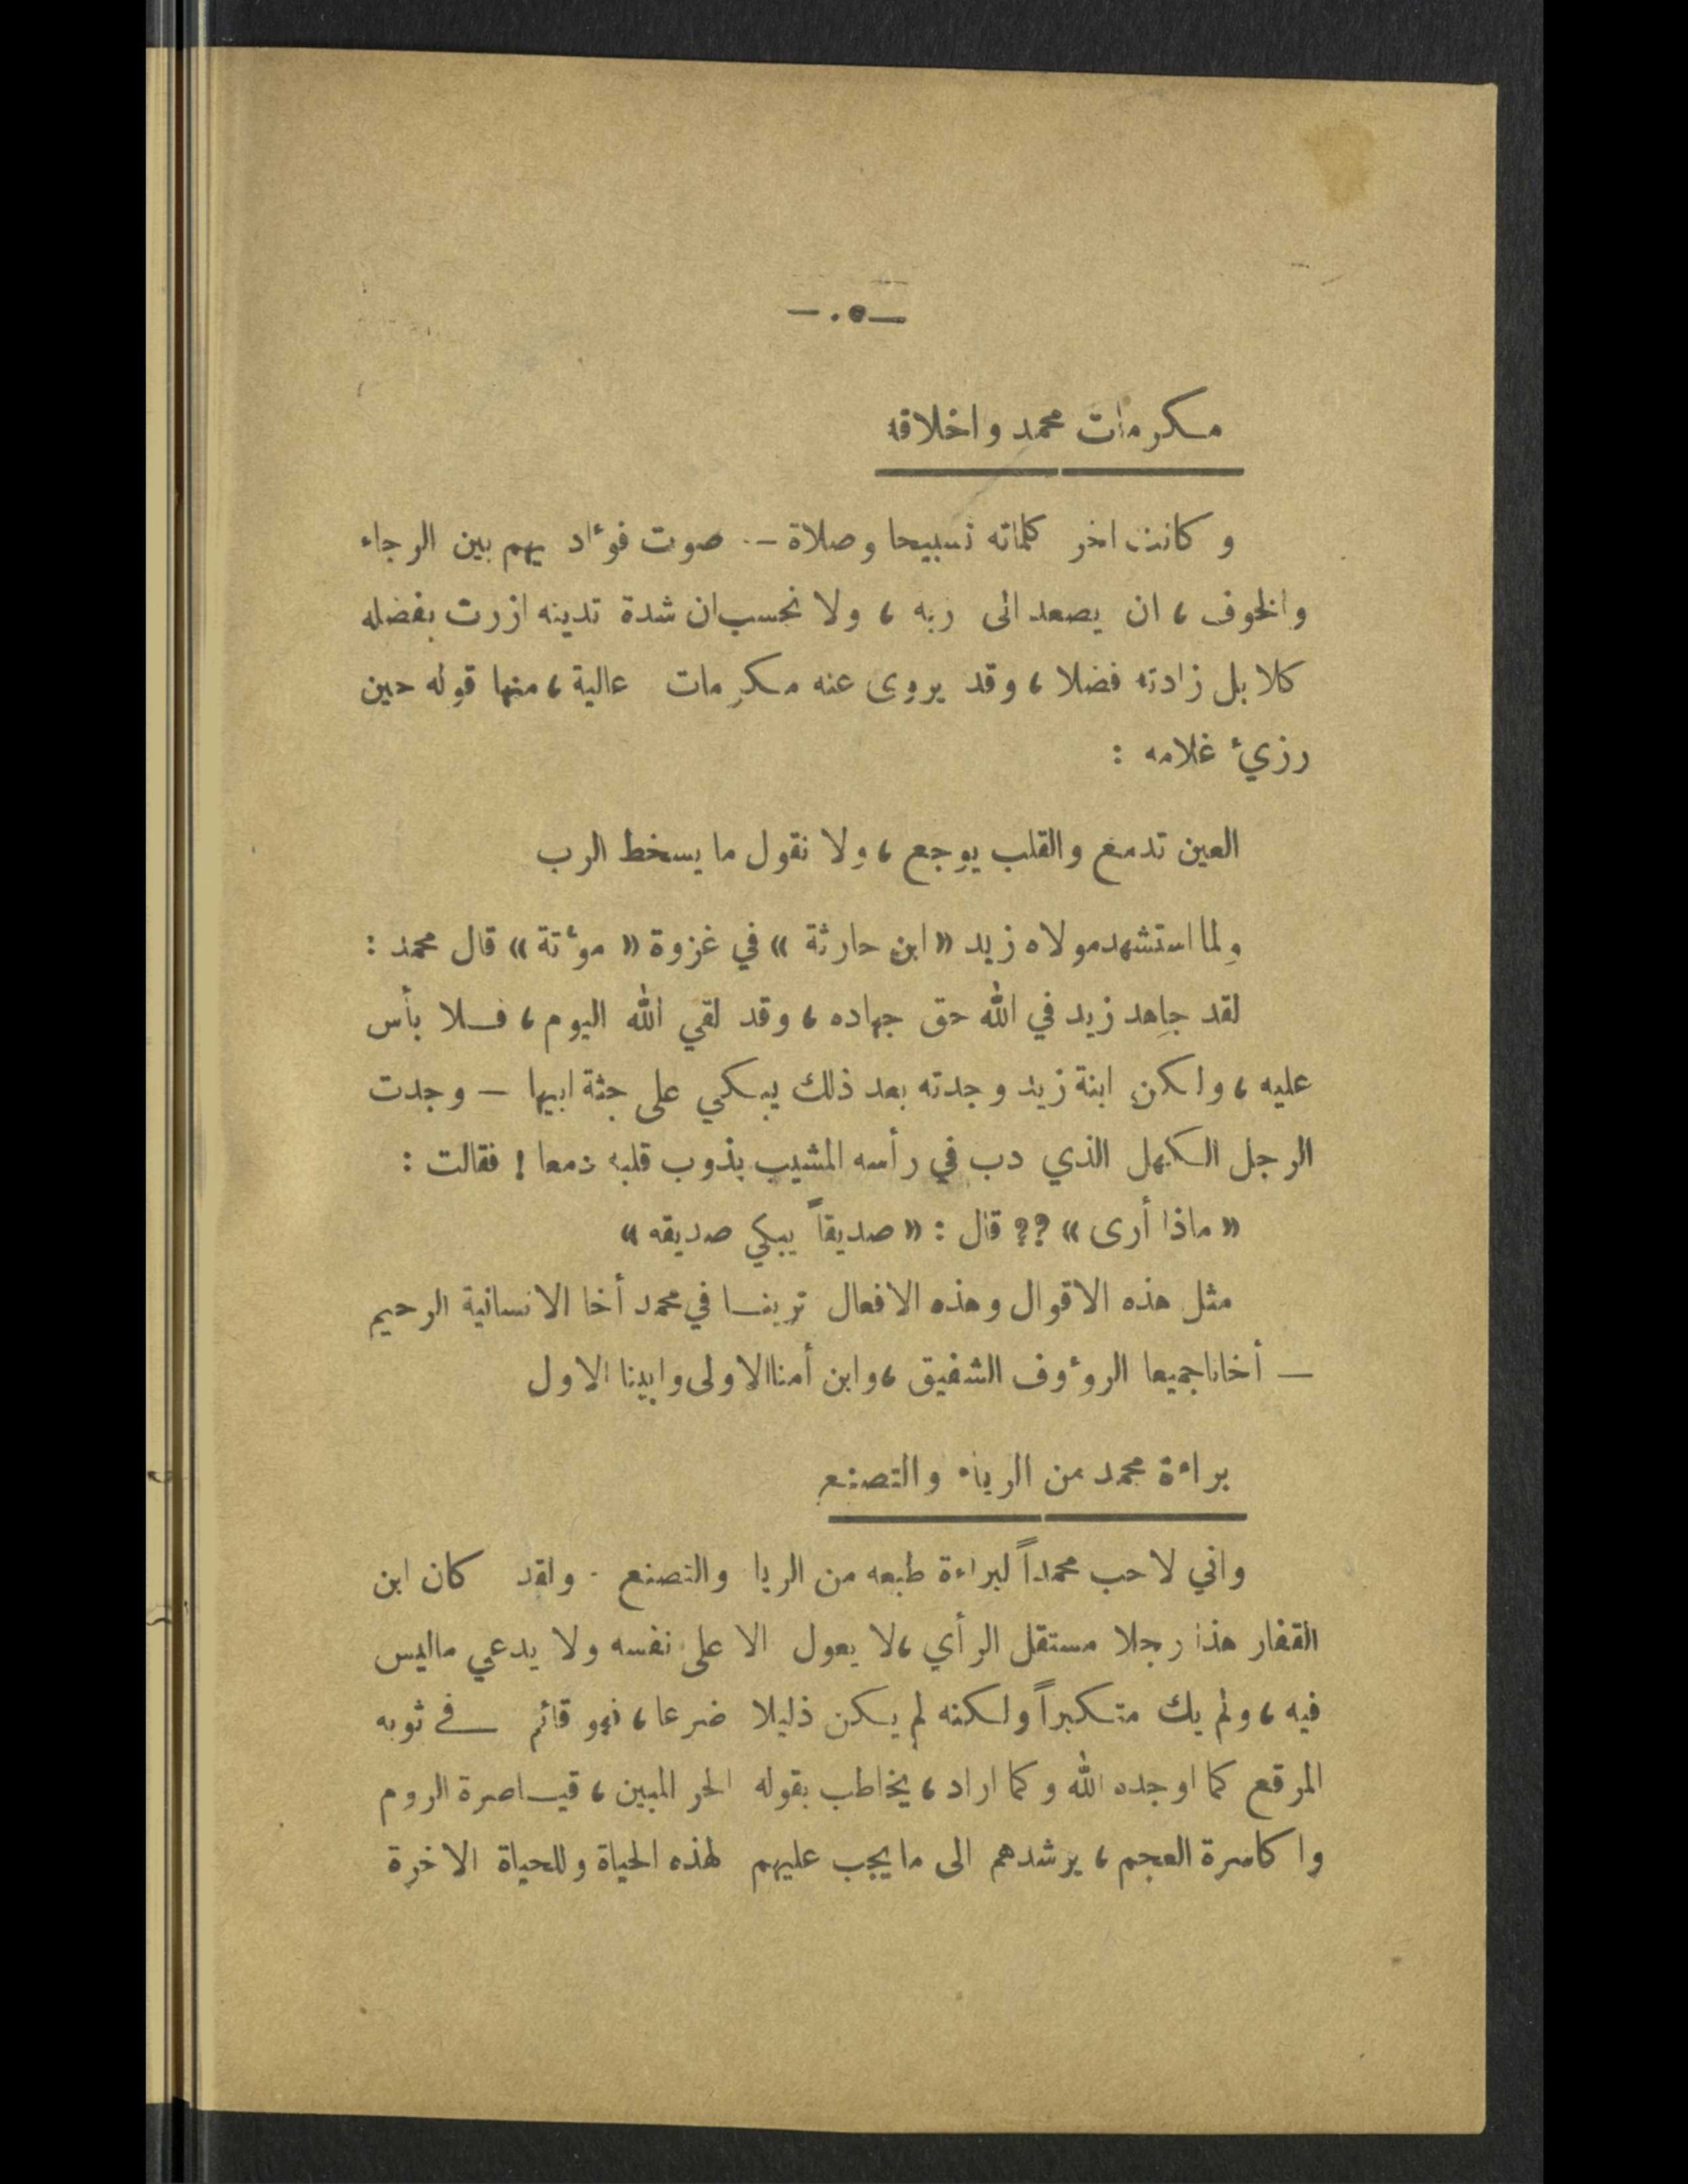 —٥٠—
مكرمات محمد واخلاقه
وكانت اخر كلماته تسبيحا وصلاة — صوت فؤاد يهم بين الرجاء
والخوف، ان يصعد الى ربه، ولا نحسب ان شدة تدينه ازرت بفضله
كلا بل زادته فضلا، وقد يروى عنه مكرمات عالية، منها قوله حين
رزيء غلامه :
العين تدمع والقلب يوجع، ولا نقول ما يسخط الرب
ولما استشهد مولاه زيد «ابن حارثة» في غزوة «مؤتة» قال محمد :
لقد جاهد زيد في الله حق جهاده، وقد لقي الله اليوم، فلا بأس
عليه، ولكن ابنة زيد وجدته بعد ذلك يبكي على جثة ابيها — وجدت
الرجل الكهل الذي دب في رأسه المشيب يذوب قلبه دمعا ! فقالت :
«ماذا أرى» ؟؟ قال : «صديقاً يبكي صديقه»
مثل هذه الاقوال وهذه الافعال ترينا في محمد أخا الانسانية الرحيم
— أخانا جميعا الرؤوف الشفيق، وابن أمنا الاولى وابينا الاول
براءة محمد من الرياء والتصنع
واني لاحب محمداً لبراءة طبعه من الريا والتصنع . ولقد كان ابن
القفار هذا رجلا مستقل الرأي، لا يعول الا على نفسه ولا يدعي ماليس
فيه، ولم يك متكبراً ولكنه لم يكن ذليلا ضرعا، فهو قائم في ثوبه
المرقع كما اوجده الله وكما اراد، يخاطب بقوله الحر المبين، قياصرة الروم
واكاسرة العجم، يرشدهم الى ما يجب عليهم لهذه الحياة وللحياة الاخرة